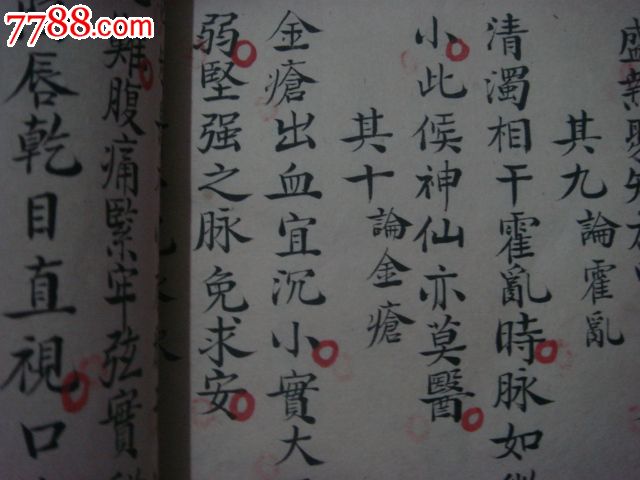 7788.com
中国收藏热线
盛
其九論霍亂
清濁相干霍亂時脉如
小此候神仙亦莫醫
其十論金瘡
金瘡出血宜沉小實大
弱堅强之脉免求安
難腹痛緊牢弦實
唇乾目直視口